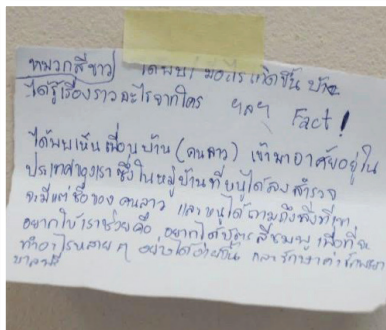 หมวกสีขาว ได้พบ มีอะไรเกิดขึ้นบ้าง
ได้รู้เรื่องราวอะไรจากใคร ฯลฯ Fact!
ได้พบเห็นเพื่อนบ้าน (คนลาว) เข้ามาอาศัยอยู่ใน
ประเทศของเรา ซึ่งในหมู่บ้านที่หนูได้ลงสำรวจ
จะมีแต่ชื่อของคนลาว และหนูได้ถามถึงสิ่งที่เขา
อยากให้เราช่วยคือ อยากได้บัตรสีชมพู เพื่อที่จะ
ทำอะไรหลาย ๆ อย่างได้ง่ายขึ้น และรักษาค่ารักษาพยา
บาลฟรี